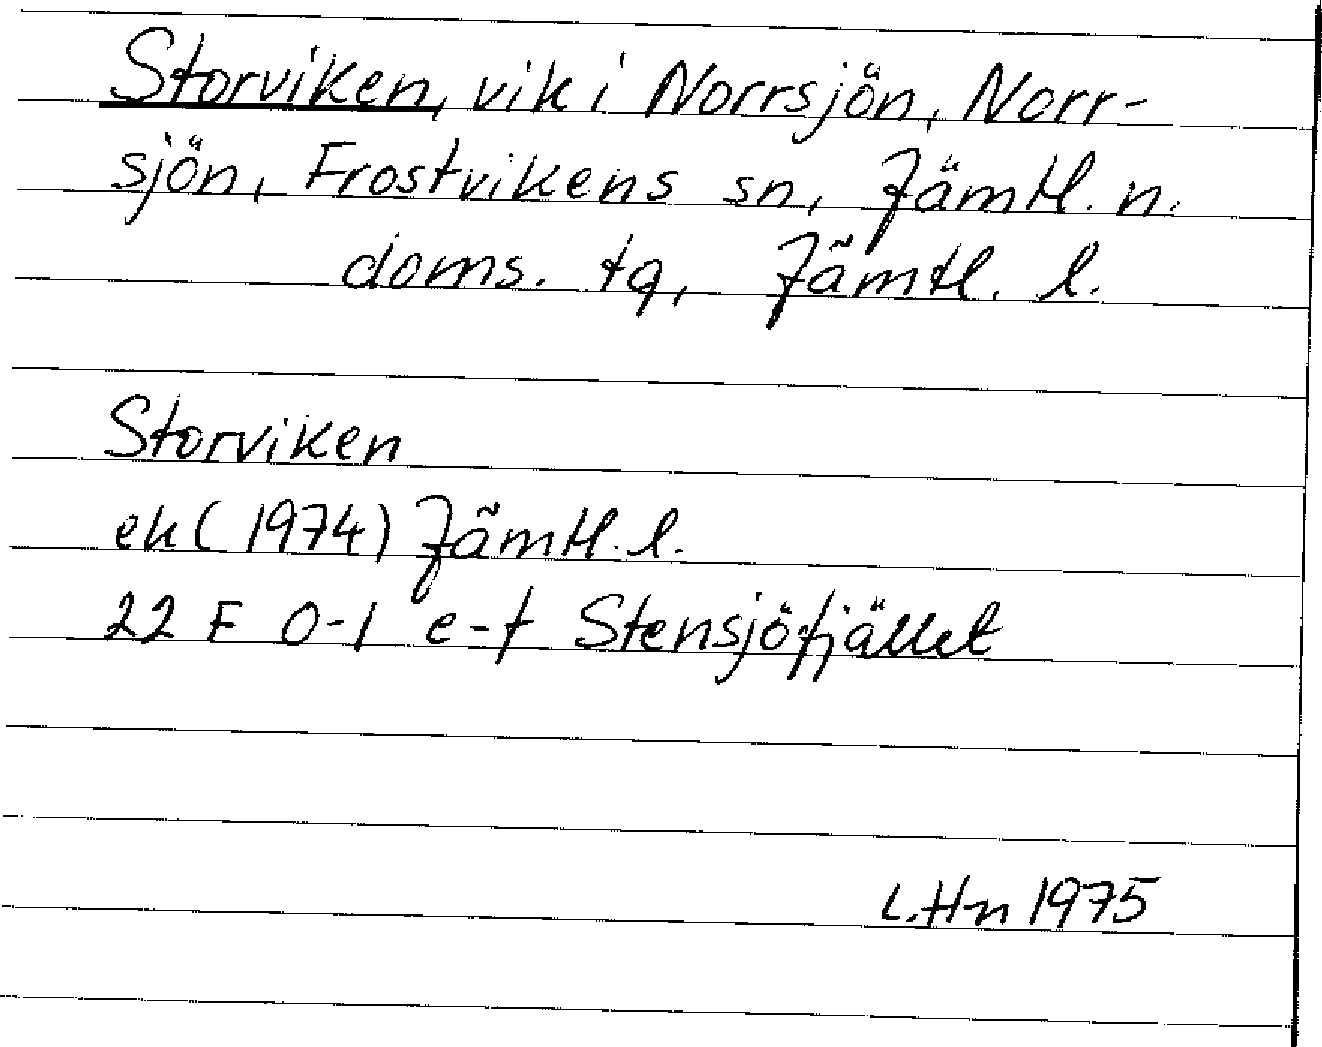 Storviken, vik i Norrsjön, Norr-
sjön, Frostvikens sn, Jämtl. n.
doms. tg, Jämtl. l.
Storviken
ek (1974) Jämtl. l.
22 E 0-1 e-f Stensjöfjället
L.Hn 1975